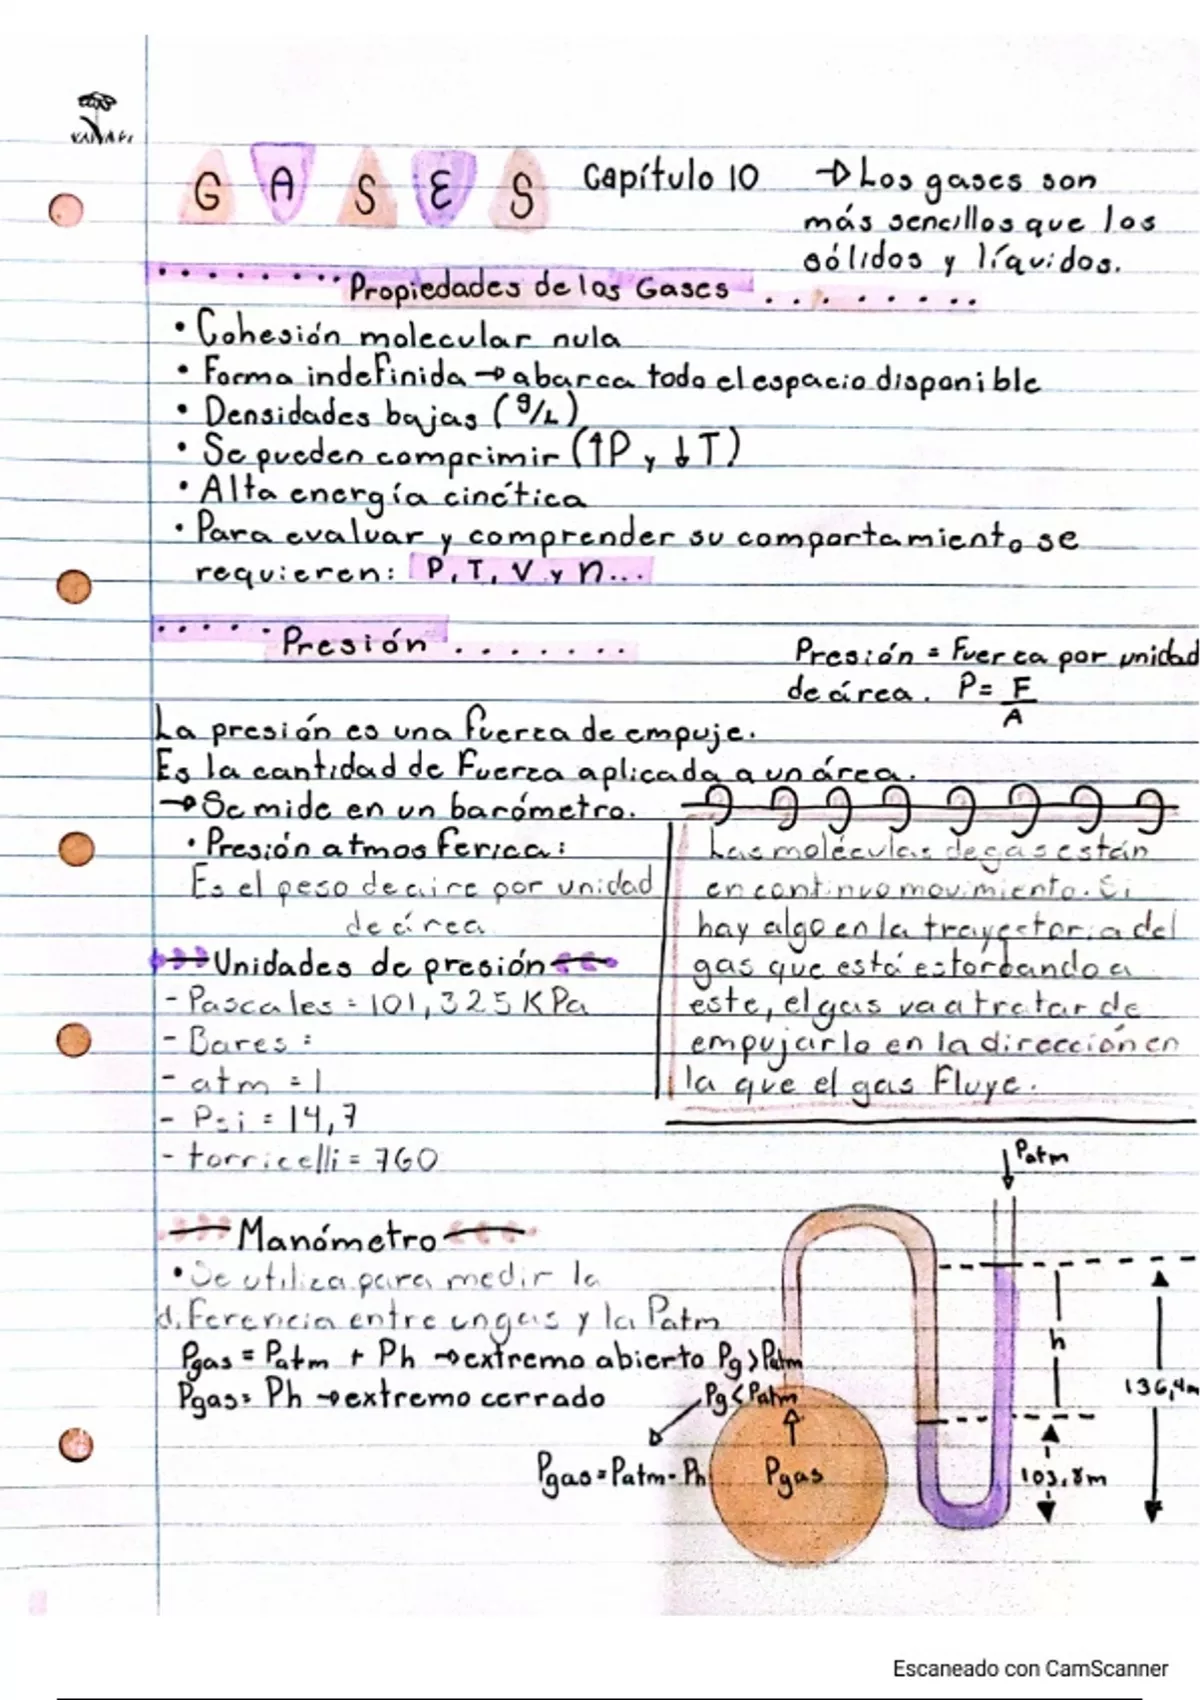 GASES Capítulo 10 → Los gases son
más sencillos que los
sólidos y líquidos.
Propiedades de los Gases
• Cohesión molecular nula
• Forma indefinida → abarca todo el espacio disponible
• Densidades bajas (g/L)
• Se pueden comprimir (↑P y ↓T)
• Alta energía cinética
• Para evaluar y comprender su comportamiento se
requieren: P, T, V y n...
Presión
Presión = Fuerza por unidad
de área. P = F/A
La presión es una fuerza de empuje.
Es la cantidad de Fuerza aplicada a un área.
→ Se mide en un barómetro.
• Presión atmosferica:
Es el peso de aire por unidad
de área
Unidades de presión
- Pascales = 101,325 KPa
- Bares =
- atm = 1
- Psi = 14,7
- torricelli = 760
Las moléculas de gas están
en continuo movimiento. Si
hay algo en la trayectoria del
gas que está estorbando a
este, el gas va a tratar de
empujarlo en la dirección en
la que el gas Fluye.
Manómetro
• Se utiliza para medir la
diferencia entre un gas y la Patm
Pgas = Patm + Ph → extremo abierto Pg > Patm
Pgas = Ph → extremo cerrado
Pg < Patm
Pgas = Patm - Ph
Patm
h
136,4m
103,8m
Pgas
Escaneado con CamScanner